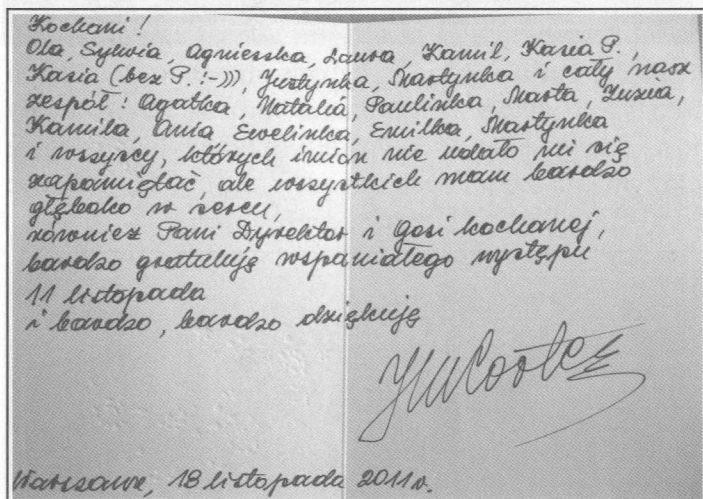 Kochani!
Ola, Sylwia, Agnieszka, Laura, Kamil, Kasia P.,
Kasia (bez P. :-))), Justynka, Martynka i cały nasz
zespół: Agatka, Natalia, Paulinka, Marta, Zuzia,
Kamila, Ania Ewelinka, Emilka, Martynka
i wszyscy, których imion nie udało mi się
zapamiętać, ale wszystkich mam bardzo
głęboko w sercu,
również Pani Dyrektor i Gosi kochanej,
bardzo gratuluję wspaniałego występu
11 listopada
i bardzo, bardzo dziękuję
Warszawa, 18 listopada 2011 r.